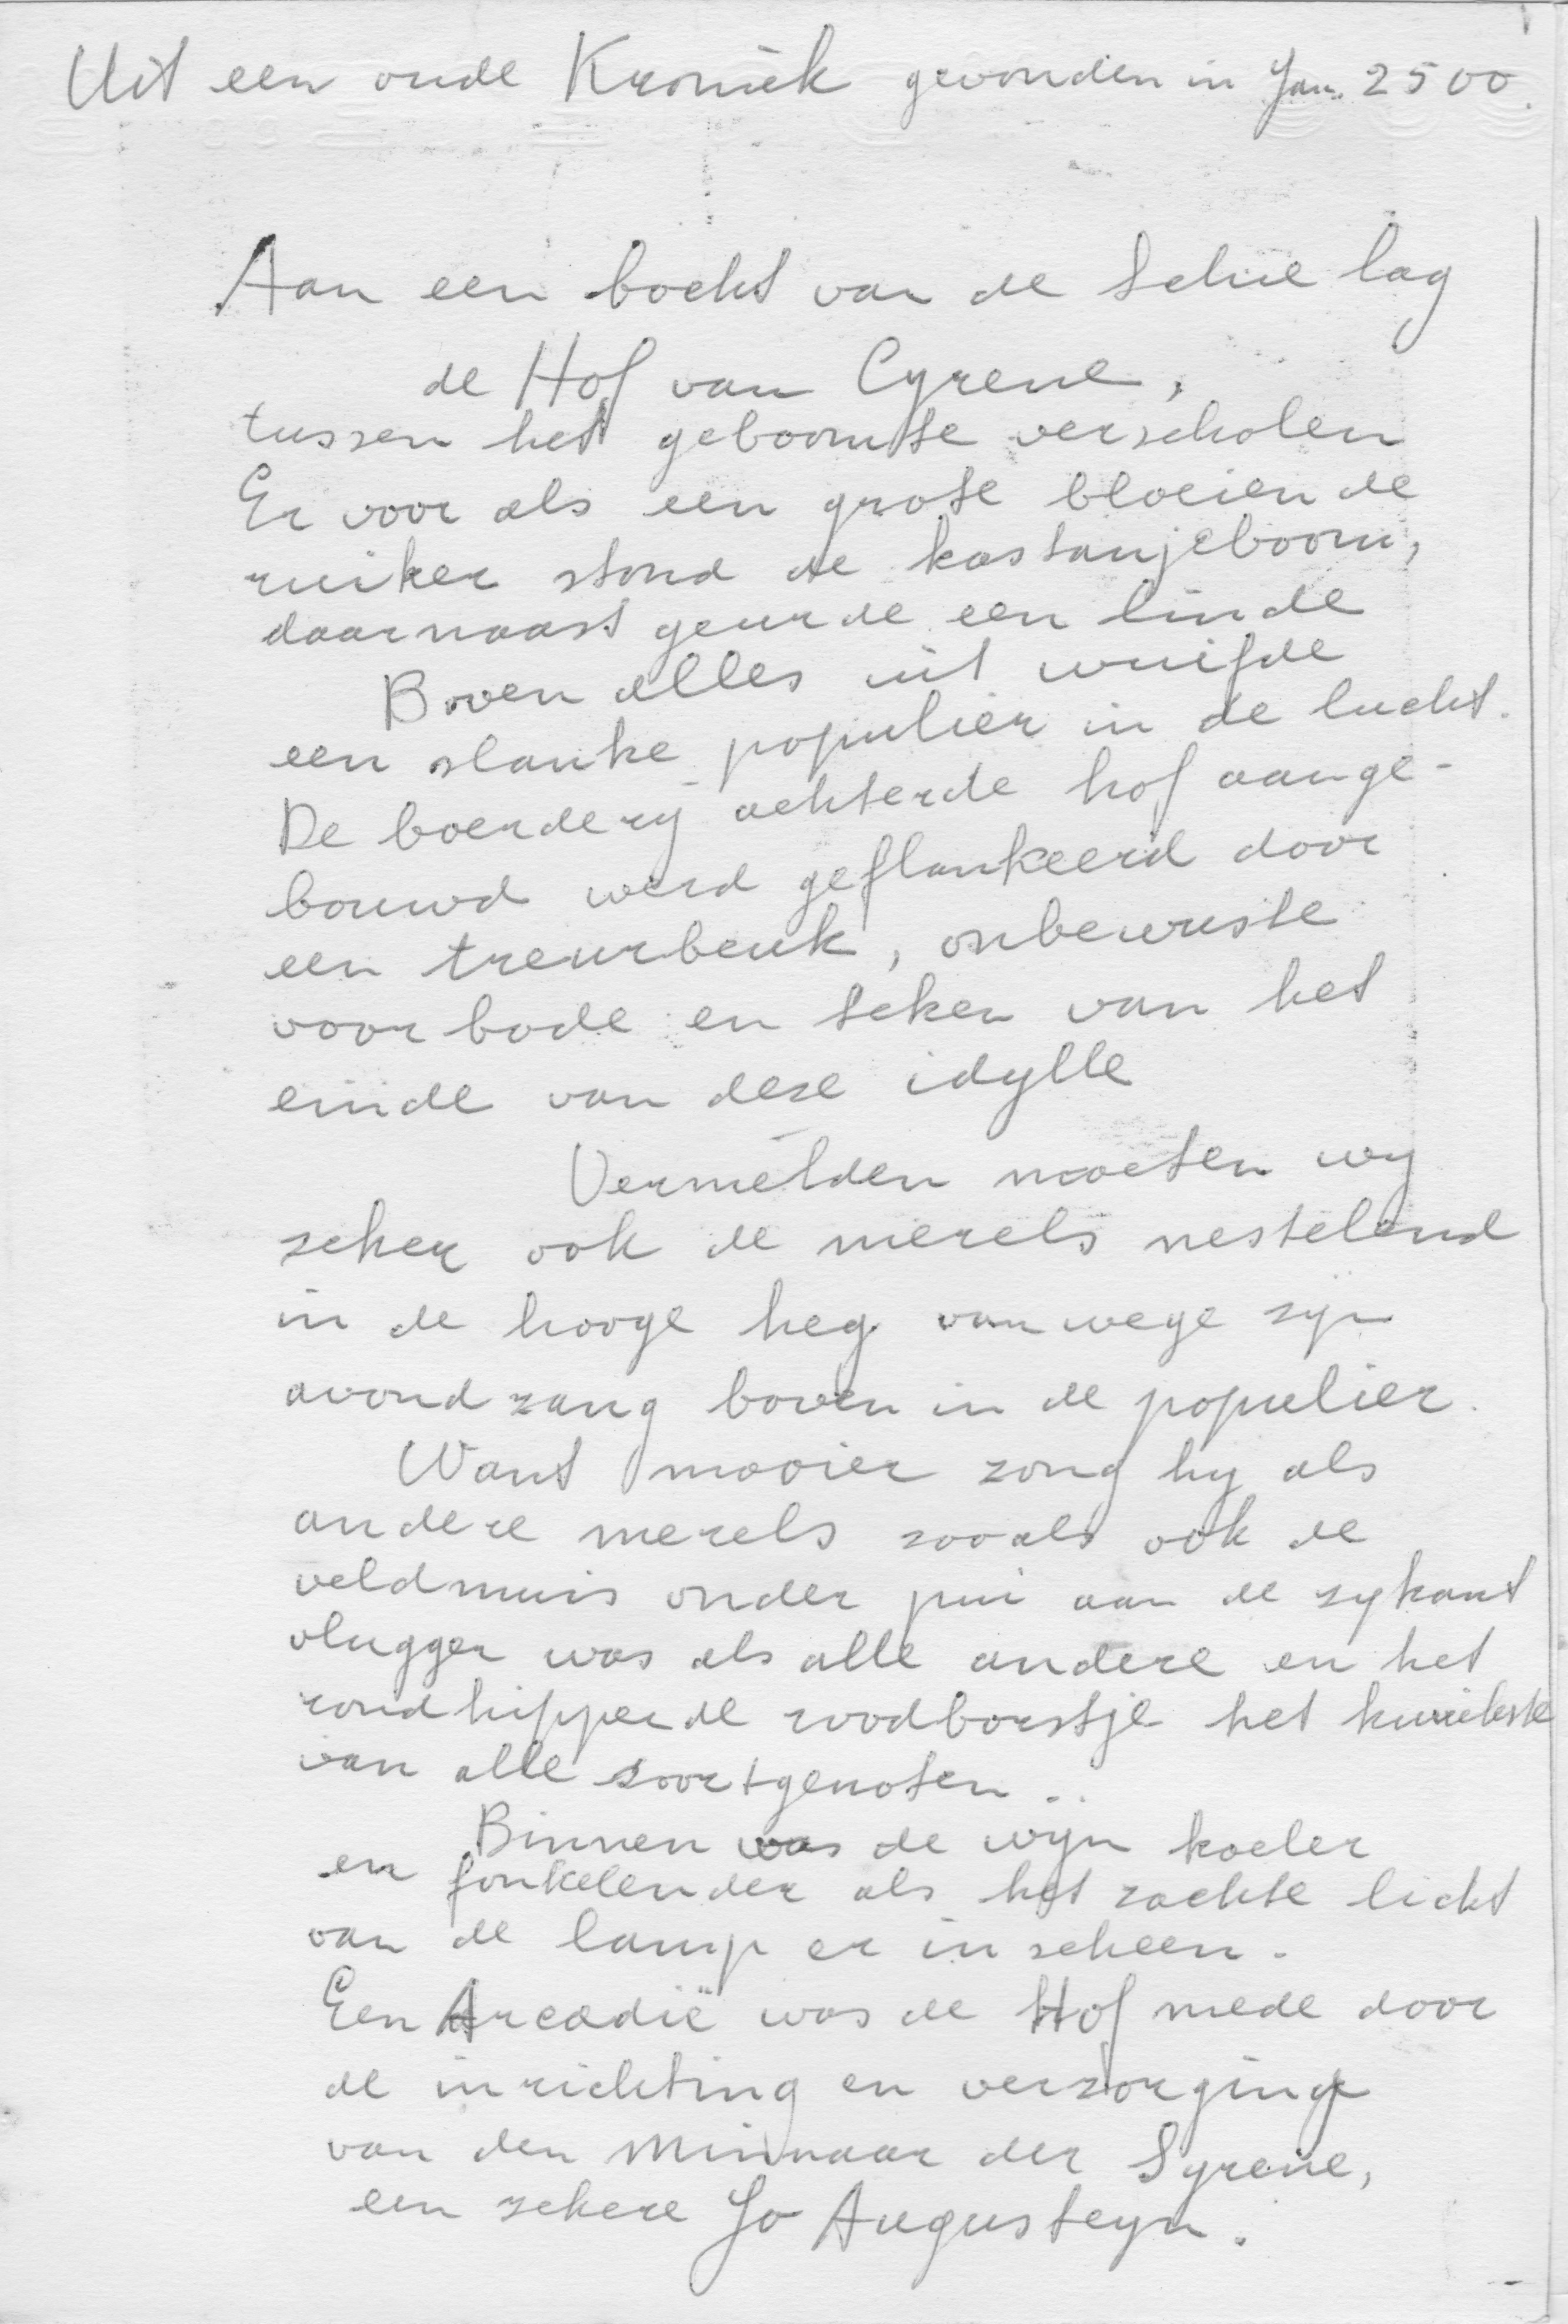 Uit een oude Kroniek gevonden in Jan. 2500.
Aan een bocht van de Schie lag
de Hof van Cyrene,
tussen het geboomte verscholen
Er voor als een grote bloeiende
ruiker stond de kastanjeboom,
daarnaast geurde een linde
Boven alles uit wuifde
een slanke populier in de lucht.
De boerderij achter de hof aange-
bouwd werd geflankeerd door
een treurbeuk, onbewuste
voorbode en teken van het
einde van deze idylle
Vermelden moeten wij
zeker ook de merels nestelend
in de hooge heg vanwege zijn
avondzang boven in de populier.
Want mooier zong hij als
andere merels zooals ook de
veldmuis onder pui aan de zijkant
vlugger was als alle andere en het
rondhippende roodborstje het kwiekste
van alle soortgenoten..
Binnen was de wijn koeler
en fonkelender als het zachte licht
van de lamp er in scheen.
Een Arcadië was de Hof mede door
de inrichting en verzorging
van den Minnaar der Syrene,
een zekere Jo Augusteyn.